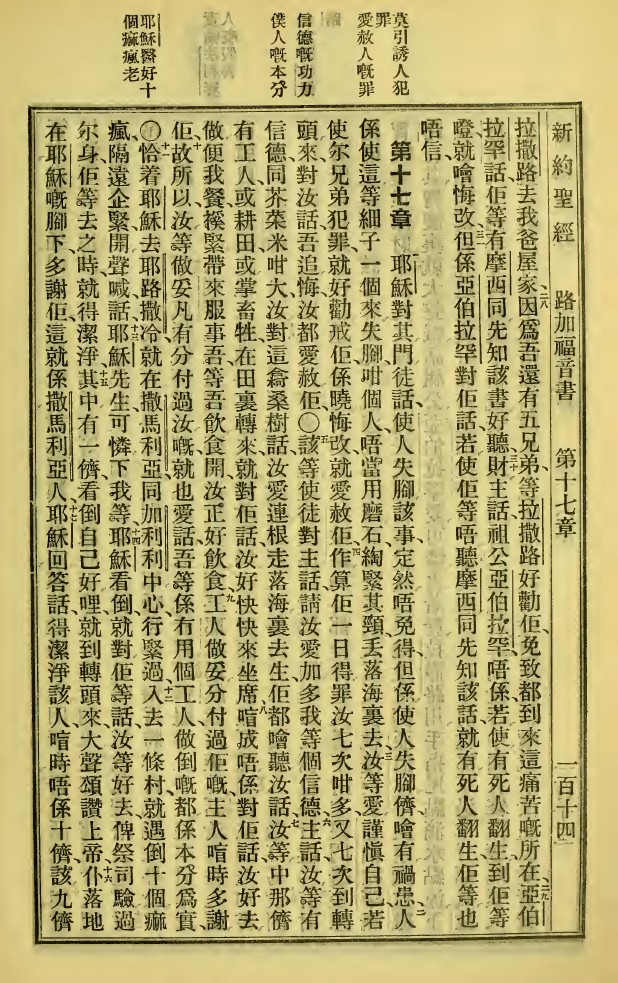 新約聖經 路加福音書 第十七章 一百十四
拉撒路去我爸屋家、二八因爲吾還有五兄弟等、拉撒路好勸佢、免致都到來這痛苦嘅所在、二九亞伯
拉罕話、佢等有摩西同先知該書好聽、三十財主話、祖公亞伯拉罕、唔係、若使有死人翻生到佢等
噔、就噲悔改、三一但係亞伯拉罕對佢話、若使佢等唔聽摩西同先知該話、就有死人翻生、佢等也
唔信、
第十七章 一耶穌對其門徒話、使人失腳該事、定然唔免得、但係使人失腳儕、噲有禍患、二人
係使這等細子一個來失腳、咁個人唔當用磨石綯緊其頸、丟落海裏去、三汝等愛謹愼自己、若
使尔兄弟犯罪、就好勸戒佢、係曉悔改、就愛赦佢、四作算佢一日得罪汝七次咁多、又七次到轉
頭來對汝話、吾追悔、汝都愛赦佢、〇五該等使徒對主話、請汝愛加多我等個信德、六主話、汝等有
信德同芥菜米咁大、汝對這翕桑樹話、汝愛連根走落海裏去生、佢都噲聽汝話、七汝等中那儕
有工人或耕田或掌畜牲、在田裏轉來、就對佢話、汝好快快來坐席、八喧成唔係對佢話、汝好去
做便我餐、緊帶來服事吾等吾飲食開、汝正好飲食、九工人做妥分付過佢嘅、主人喧時多謝
佢、十故所以汝等做妥凡有分付過汝嘅、就也愛話、吾等係有用個工人、做倒嘅都係本分爲實
〇十一恰着耶穌去耶路撒冷、就在撒馬利亞同加利利中心行緊過、十二入去一條村、就遇倒十個痲
瘋、隔遠企緊、十三開聲喊話、耶穌先生可憐下我等、十四耶穌看倒、就對佢等話、汝等好去俾祭司驗過
尔身、佢等去之時、就得潔淨、十五其中有一儕、看倒自己好哩、就到轉頭來、大聲頌讚上帝、十六仆落地
在耶穌嘅腳下、多謝佢、這就係撒馬利亞人、十七耶穌回答話、得潔淨該人喧時唔係十儕、該九儕
莫引誘人犯罪
愛赦人嘅罪
信德嘅功力
僕人嘅本分
耶穌醫好十個痲瘋老